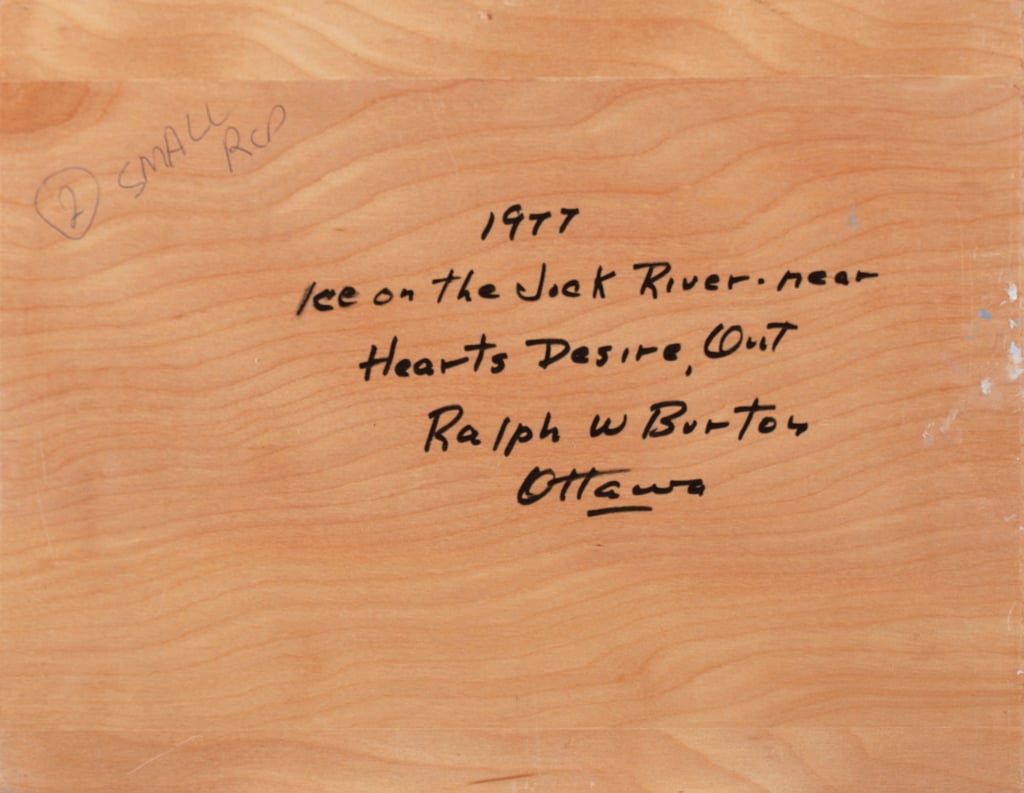 ② SMALL
RCP
1977
Ice on the Jock River. near
Hearts Desire, Ont
Ralph W Burton
Ottawa